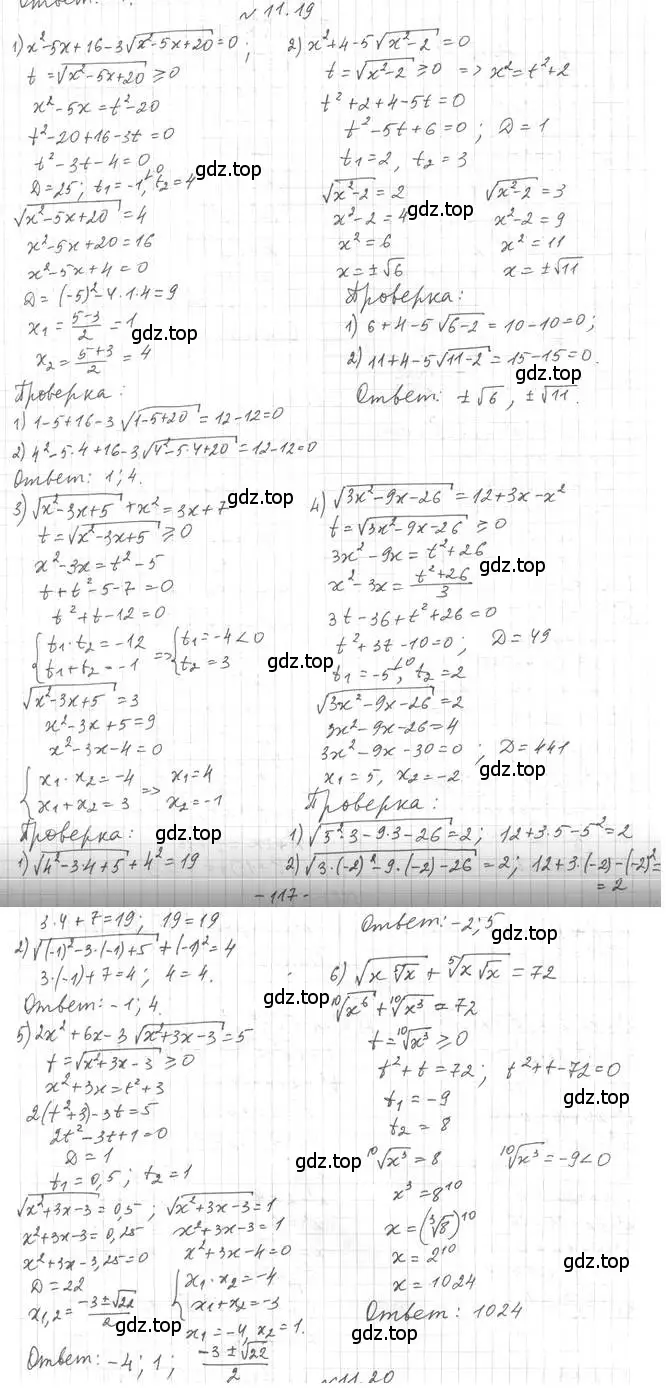 Ответ:
№ 11.19
1) x²-5x+16-3√(x²-5x+20)=0;
t=√(x²-5x+20) ≥0
x²-5x=t²-20
t²-20+16-3t=0
t²-3t-4=0
D=25; t₁=-1<0, t₂=4
gdz.top
√(x²-5x+20)=4
x²-5x+20=16
x²-5x+4=0
D=(-5)²-4·1·4=9
x₁=(5-3)/2=1
gdz.top
x₂=(5+3)/2=4
Проверка:
1) 1-5+16-3√(1-5+20)=12-12=0
2) 4²-5·4+16-3√(4²-5·4+20)=12-12=0
Ответ: 1; 4.
2) x²+4-5√(x²-2)=0
t=√(x²-2) ≥0 => x²=t²+2
t²+2+4-5t=0
t²-5t+6=0; D=1
t₁=2, t₂=3
√(x²-2)=2 √(x²-2)=3
x²-2=4 x²-2=9
gdz.top
x²=6 x²=11
x=±√6 x=±√11
Проверка:
1) 6+4-5√(6-2)=10-10=0;
2) 11+4-5√(11-2)=15-15=0.
gdz.top
Ответ: ±√6, ±√11.
3) √(x²-3x+5)+x²=3x+7
gdz.top
t=√(x²-3x+5) ≥0
x²-3x=t²-5
t+t²-5-7=0
t²+t-12=0
{t₁·t₂=-12 => {t₁=-4<0
{t₁+t₂=-1 {t₂=3
gdz.top
√(x²-3x+5)=3
x²-3x+5=9
x²-3x-4=0
{x₁·x₂=-4 => x₁=4
{x₁+x₂=3 x₂=-1
Проверка:
gdz.top
1) √(4²-3·4+5)+4²=19
4) √(3x²-9x-26)=12+3x-x²
t=√(3x²-9x-26) ≥0
3x²-9x=t²+26
gdz.top
x²-3x=(t²+26)/3
3t-36+t²+26=0
t²+3t-10=0; D=49
t₁=-5<0, t₂=2
√(3x²-9x-26)=2
3x²-9x-26=4
3x²-9x-30=0; D=441
x₁=5, x₂=-2
gdz.top
Проверка:
1) √(5²·3-9·3-26)=2; 12+3·5-5²=2
2) √(3·(-2)²-9·(-2)-26)=2; 12+3·(-2)-(-2)²=
=2
-117-
3·4+7=19; 19=19
2) √((-1)²-3·(-1)+5)+(-1)²=4
3·(-1)+7=4; 4=4.
Ответ: -1; 4.
gdz.top
Ответ: -2; 5
5) 2x²+6x-3√(x²+3x-3)=5
t=√(x²+3x-3) ≥0
x²+3x=t²+3
2(t²+3)-3t=5
2t²-3t+1=0
D=1
gdz.top
t₁=0,5; t₂=1
√(x²+3x-3)=0,5; √(x²+3x-3)=1
x²+3x-3=0,25 x²+3x-3=1
x²+3x-3,25=0 x²+3x-4=0
D=22 {x₁·x₂=-4
x₁,₂=(-3±√22)/2 {x₁+x₂=-3
gdz.top
x₁=-4, x₂=1.
Ответ: -4; 1; (-3±√22)/2
6) √(x ⁵√x)+⁵√(x√x)=72
¹⁰√(x⁶)+¹⁰√(x³)=72
t=¹⁰√(x³) ≥0
t²+t=72; t²+t-72=0
gdz.top
t₁=-9
t₂=8
¹⁰√(x³)=8 ¹⁰√(x³)=-9<0
x³=8¹⁰
x=(³√8)¹⁰
x=2¹⁰
gdz.top
x=1024
Ответ: 1024
№11.20